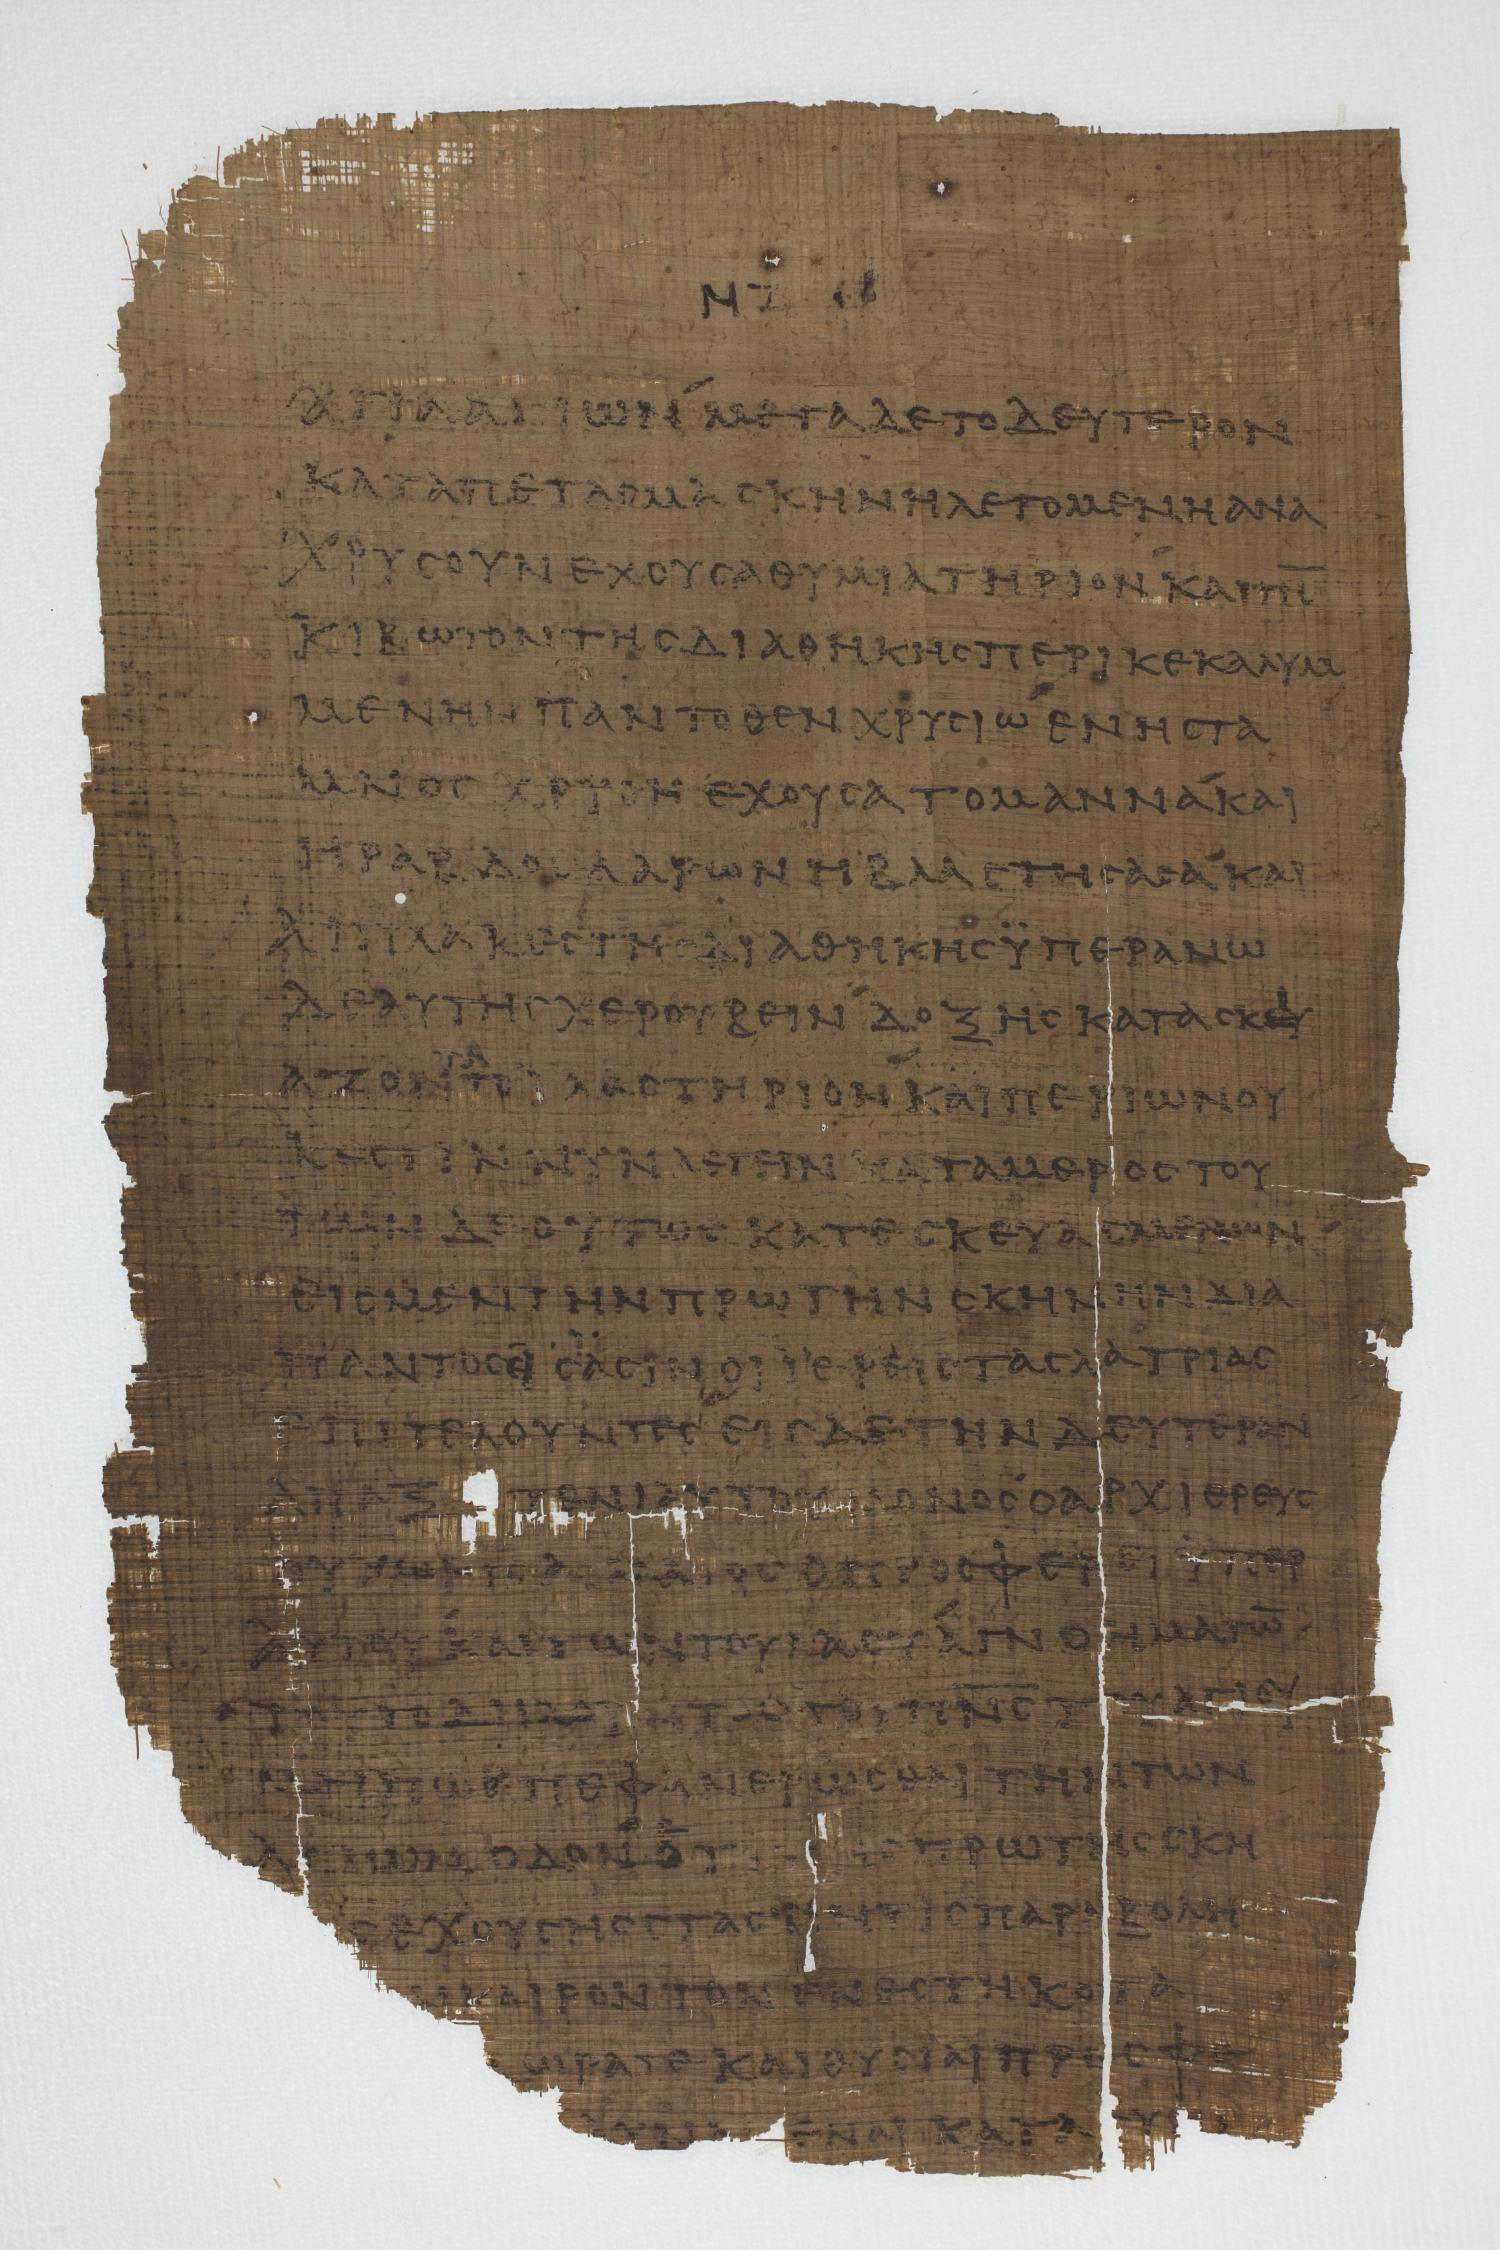 αγιααγιων μεταδετοδευτερον
καταπετασμασκηνηλεγομενηανα
χρυσουνεχουσαθυμιατηριον καιτη̅
κιβωτοντησδιαθηκησπερικεκαλυμ
μενηνπαντοθενχρυσιω ενηστα
μνοσχρυσηεχουσατομαννα και
ηραβδοσααρωνηβλαστησασα και
αιπλακεστησδιαθηκησϋπερανω
δεαυτησχερουβειν δοξησκατασκι
αζοντοϊλαστηριον καιπεριωνου
κεστιννυνλεγεινκαταμεροστου
τωνδεουτωσκατεσκευασμενων
εισμεντηνπρωτηνσκηνηνδια
παντοσεισϊασινοιϊερεισταςλατριας
επιτελουντεσεισδετηνδευτεραν
απαξτουενιαυτουμονοσοαρχιερευς
ουχωρισαιματοσοπροσφερειϋπερ
αυτου καιτωντουλαουαγνοηματω̅
τουτοδηλουντοστουπν̅στουαγιου
μηπωπεφανερωσθαιτηντων
αγιωνοδον ετιτησπρωτησσκη
σεχουσηςστασινητισπαραβολη
τονκαιροντονενεστηκοτα
δωρατεκαιθυσιαιπροσφε
δυναμεναικατα